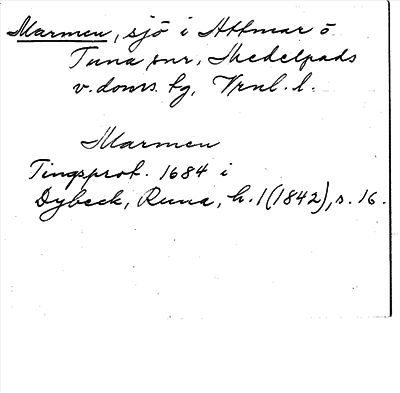 Marmen, sjö i Attmar o
Tuna snr, Medelpads
v. doms. tg, Vrnl. l.
Marmen
Tingsprot. 1684 i
Dybeck, Runa, h. 1 (1842), s. 16.